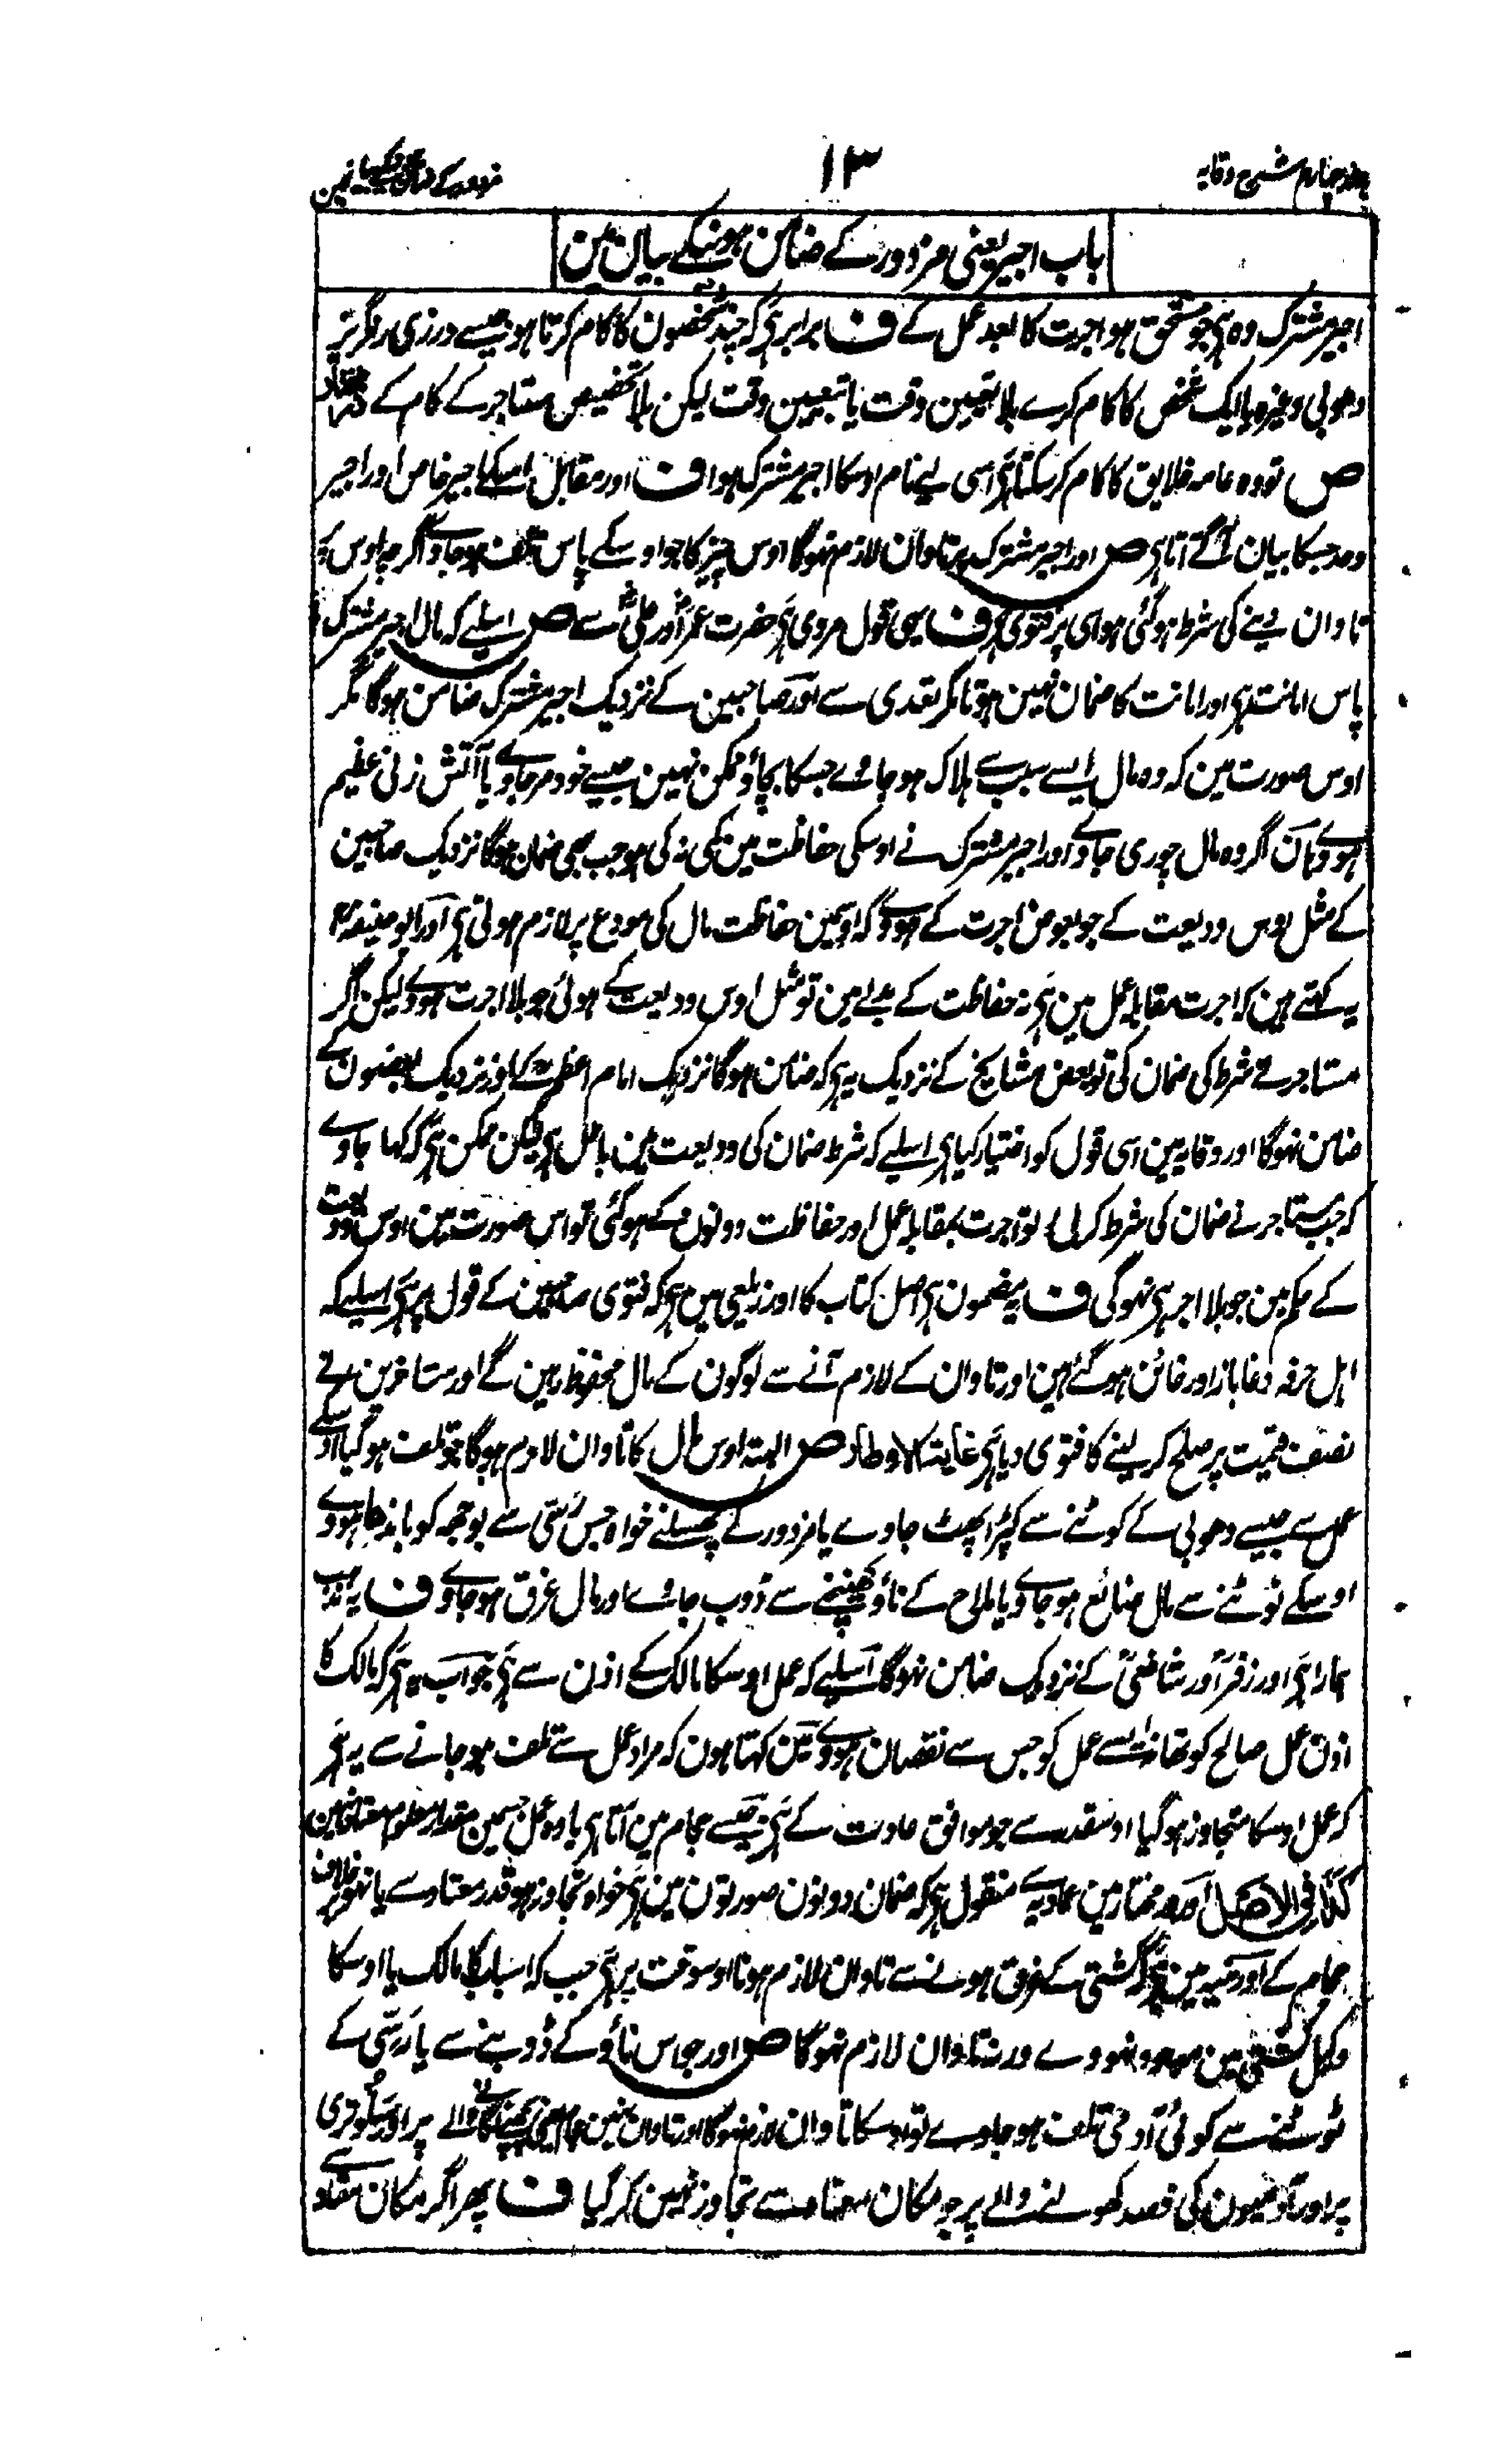 جلد چہارم شرح وقایہ
۱۳
مزدور کے ضامن ہونیکے بیانمین
باب اجیر یعنی مزدور کے ضامن ہونیکے بیان مین
اجیر مشترک وہ ہی جو مستحق ہو اجرت کا بعد عمل کے ف برابر ہی کہ چند شخصون کا کام کرتا ہو جیسے درزی رنگریز
دھوبی وغیرہ یا ایک شخص کا کام کرے بلا تعیین وقت یا بتعیین وقت لیکن بلا تخصیص مستاجر کے کام کے
ص تو وہ عامہ خلایق کا کام کر سکتا ہی اسی لیے نام اوسکا اجیر مشترک ہوا ف اور مقابل اسکے اجیر خاص اور اجیر
وحد جسکا بیان آگے آتا ہی ص اور اجیر مشترک پر تاوان لازم نہوگا اوس چیز کا جو اوسکے پاس تلف ہو جاوے اگرچہ اوس پر
تاوان دینے کی شرط ہو گئی ہو اسی پر فتوی ہی ف یہی قول مروی ہی حضرت عمرؓ اور علیؓ سے ص اسلیے کہ مال اجیر مشترک
پاس امانت ہی اور امانت کا ضمان نہین ہوتا مگر تعدی سے اور صاحبین کے نزدیک اجیر مشترک ضامن ہوگا مگر
اوس صورت مین کہ وہ مال ایسے سبب سے ہلاک ہو جاوے جسکا بچاؤ ممکن نہین جیسے خود مر جاوے یا آتش زنی عظیم
ہووے ہان اگر وہ مال چوری جاوے اور اجیر مشترک نے اوسکی حفاظت مین کمی نہ کی ہو جب بھی ضمان ہوگا نزدیک صاحبین
کے مثل اوس ودیعت کے جو بعوض اجرت کے ہووے کہ اوسمین حفاظت مال کی مودع پر لازم ہوتی ہی اور ابو حنیفہؒ
یہ کہتے ہین کہ اجرت مقابلہ عمل مین ہی نہ حفاظت کے بدلے مین تو مثل اوس ودیعت کے ہوئی جو بلا اجرت ہووے لیکن اگر
مستاجر نے شرط کی ضمان کی تو بعض مشایخ کے نزدیک یہ ہی کہ ضامن ہوگا نزدیک امام اعظم کے اور نزدیک بعضون کے
ضامن نہوگا اور وقایہ مین اسی قول کو اختیار کیا ہی اسلیے کہ شرط ضمان کی ودیعت مین باطل ہی لیکن ممکن ہی کہ کہا جاوے
کہ جب مستاجر نے ضمان کی شرط کر لی تو اجرت بمقابلہ عمل اور حفاظت دونون کے ہو گئی تو اس صورت مین اوس ودیعت
کے حکم مین جو بلا اجر ہی نہوگی ف یہ مضمون ہی اصل کتاب کا اور زیلعی مین ہی کہ فتوی صاحبین کے قول پر ہی اسلیے کہ
اہل حرفہ دغاباز اور خائن ہو گئے ہین اور تاوان کے لازم آنے سے لوگون کے مال محفوظ رہین گے اور متاخرین نے
نصف قیمت پر صلح کر لینے کا فتوی دیا ہی غایۃ الاوطار ص البتہ اوس مال کا تاوان لازم ہوگا جو تلف ہو گیا اوسکے
عمل سے جیسے دھوبی کے کوٹنے سے کپڑا پھٹ جاوے یا مزدور کے پھسلنے خواہ جس رسی سے بوجھ کو باندھا ہووے
اوسکے ٹوٹنے سے مال ضائع ہو جاوے یا ملاح کے ناؤ کھینچنے سے ڈوب جاوے اور مال غرق ہو جاوے ف یہ مذہب
ہمارا ہی اور زفرؒ اور شافعیؒ کے نزدیک ضامن نہوگا اسلیے کہ عمل اوسکا مالک کے اذن سے ہی جواب یہ ہی کہ مالک کا
اذن عمل صالح کو تھا نہ ایسے عمل کو جس سے نقصان ہووے مین کہتا ہون کہ مراد عمل سے تلف ہو جانے سے یہ ہی
کہ عمل اوسکا متجاوز ہو گیا اوسقدر سے جو موافق عادت کے ہی جیسے حجام مین آتا ہی یا وہ عمل جسمین مقدار معلوم معتاد نہین
کذا فی الاصل اور در مختار مین عمادیہ سے منقول ہی کہ ضمان دونون صورتون مین ہی خواہ تجاوز ہو قدر معتاد سے یا نہو بر خلاف
حجام کے اور منیہ مین ہی کہ کشتی کے غرق ہونے سے تاوان لازم ہونا اوسوقت پر ہی جب کہ اسباب کا مالک یا اوسکا
وکیل کشتی مین موجود نہووے ورنہ تاوان لازم نہوگا ص اور جو اس ناؤ کے ڈوبنے سے یا رسی کے
ٹوٹنے سے کوئی آدمی تلف ہو جاوے تو اوسکا تاوان لازم نہوگا اور تاوان نہین حجام یعنی پچھنے لگانیوالے پر اور سلوتری
پر اور آدمیون کی فصد کھولنے والے پر جو مکان معتاد سے تجاوز نہین کر گیا ف پھر اگر مکان معتاد سے